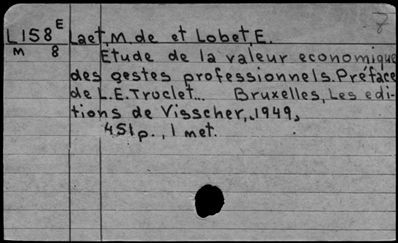 E
L158 Laet, M. de et Lobet E.
M 8 Étude de la valeur economique
des gestes professionnels. Préface
de L.E. Troclet... Bruxelles, Les edi-
tions de Visscher, 1949,
451p., 1 met.